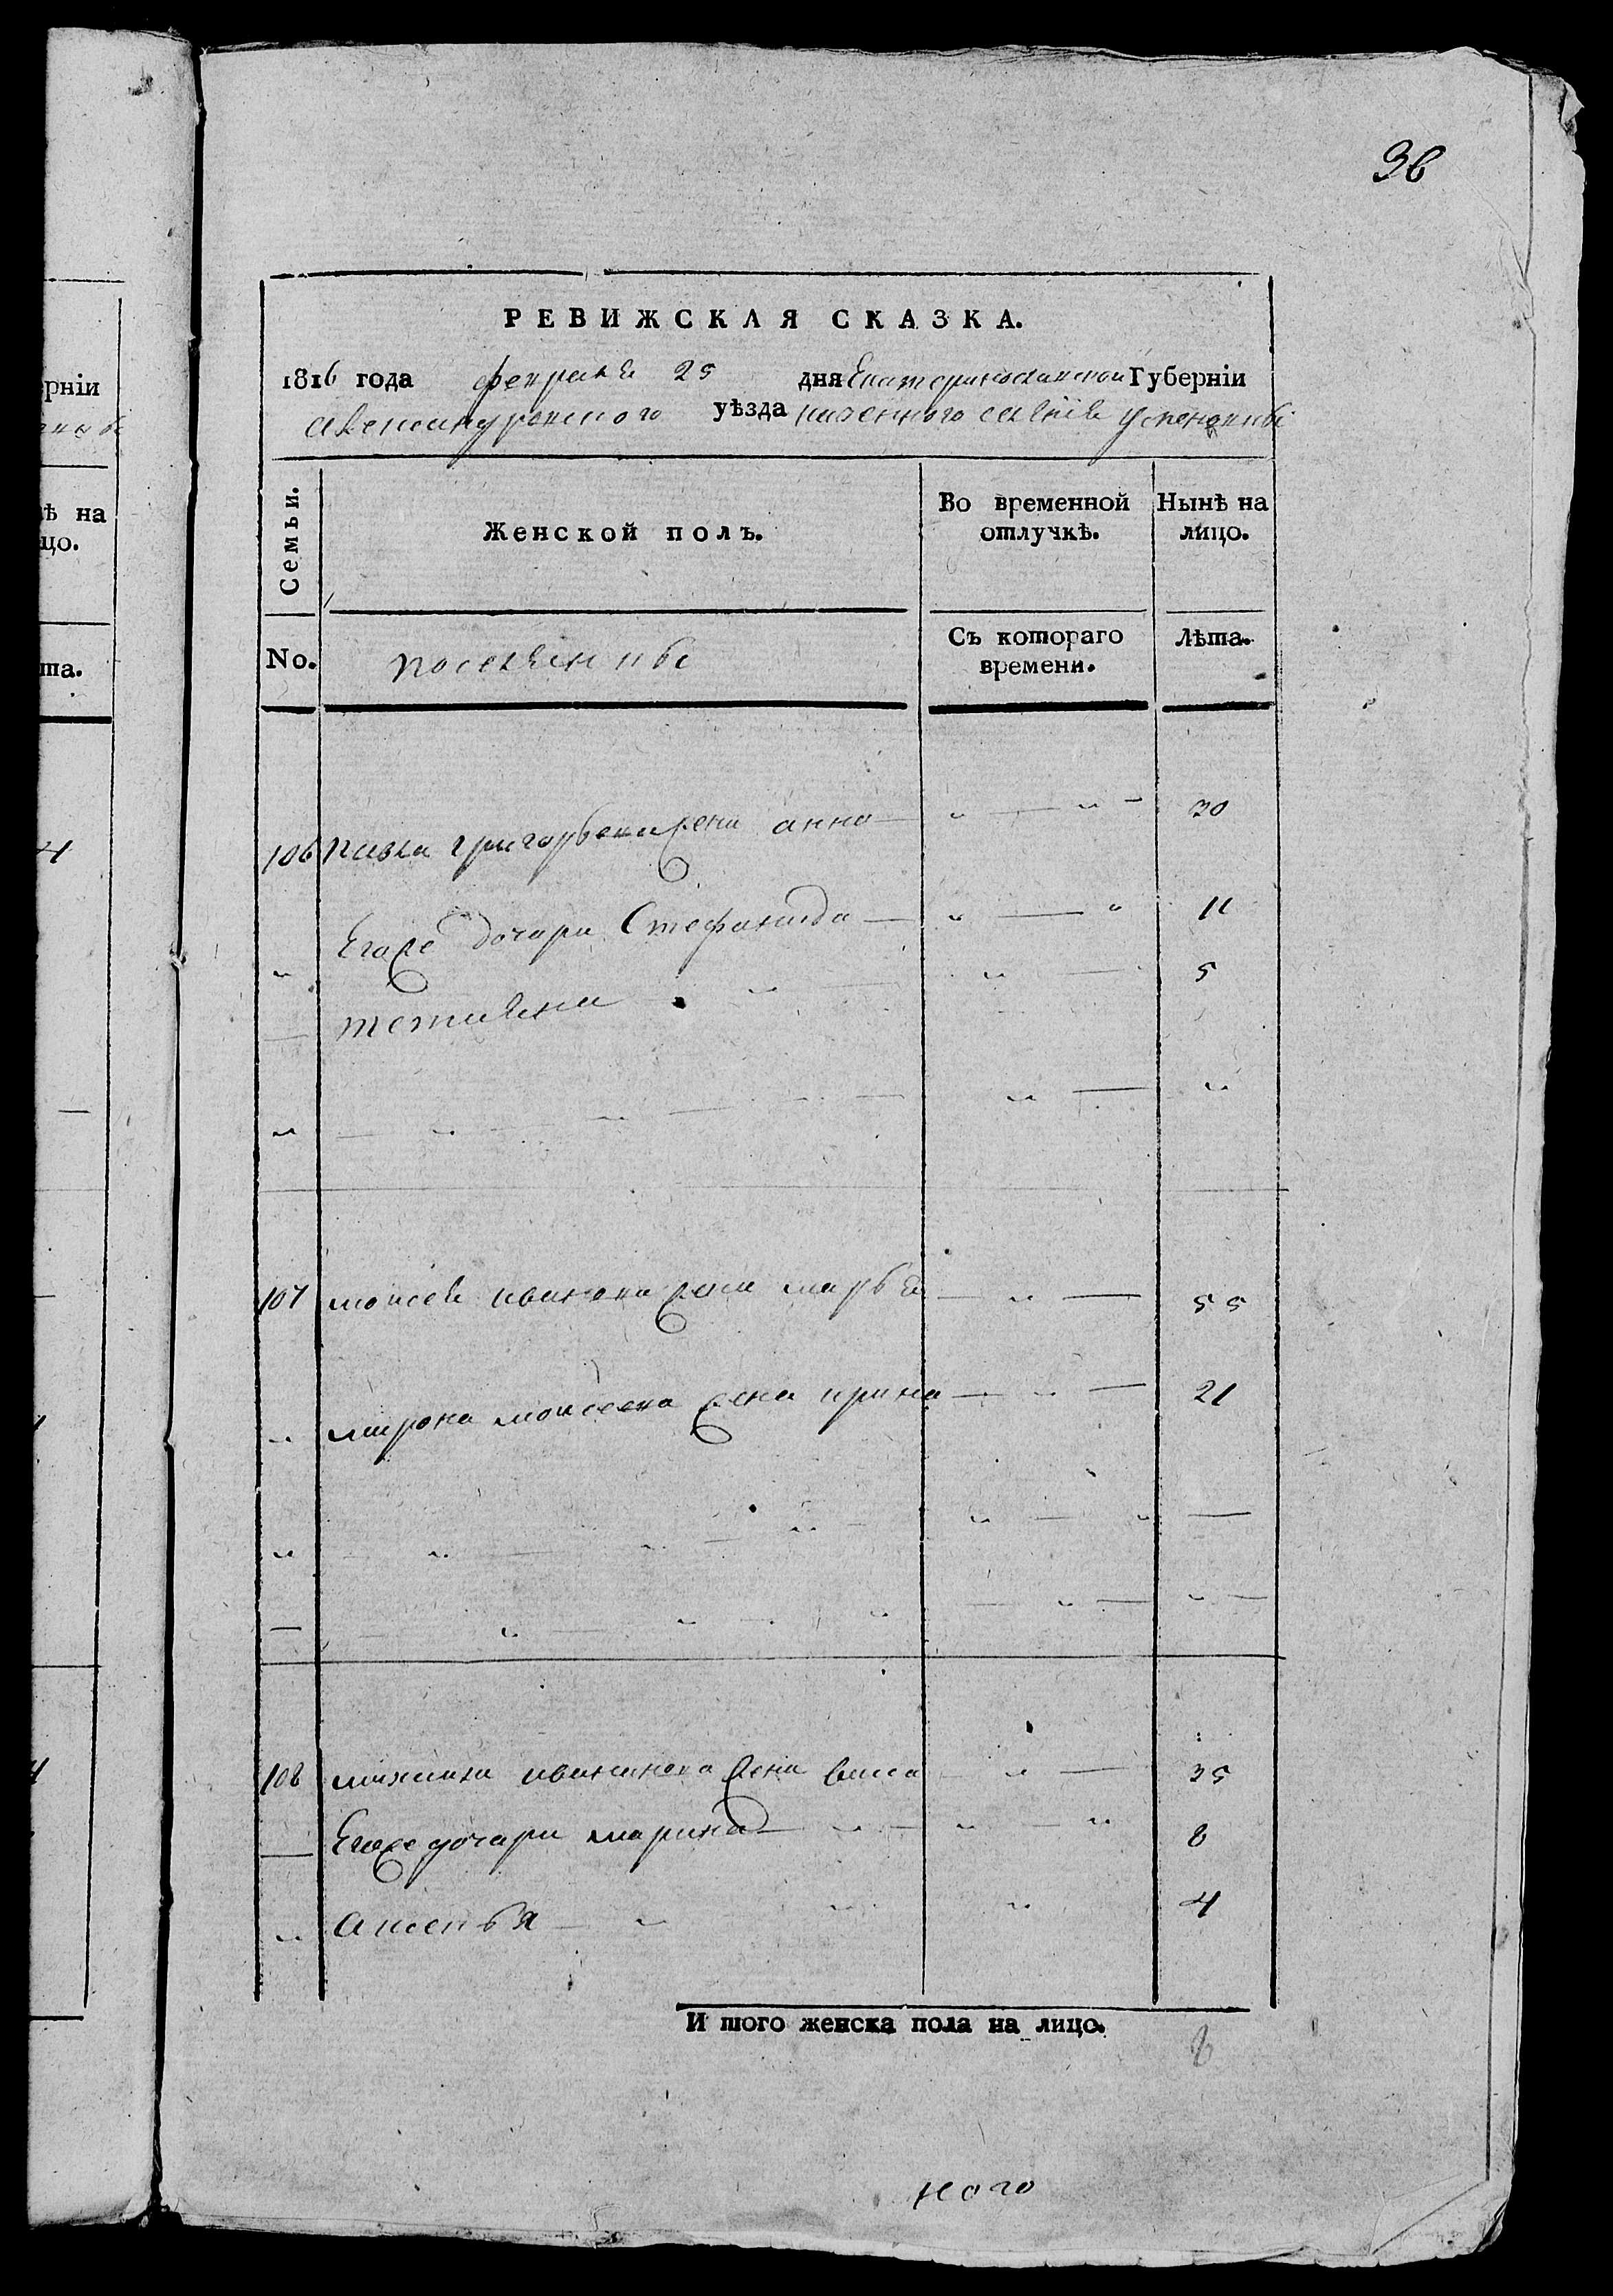 36
РЕВИЖСКАЯ СКАЗКА.
1816 года февраля 25 дня Екатеринославской Губерніи
александровского уѣзда казенного селенія Успеновки
Семьи.
Женской полъ.
Во временной отлучкѣ.
Нынѣ на лицо.
No.
поселенцы
Съ котораго времени.
Лѣта.
106 Павла григорьева жена анна 30
Егоже дочери Стефанида 11
тетияна 5
107 моисея иванова жена марья 55
мирона моисеева жена ирина 21
108 жена васса 35
Егоже дочери марина 8
аксенья 4
И того женска пола на лицо.
8
ного
рніи
ѣ на
цо.
та.
4